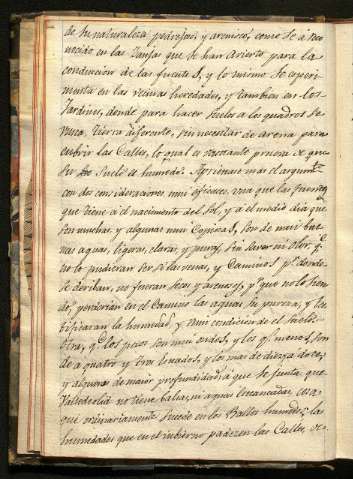 de su naturaleza pedregoso y arenisco, como se a reco
nocido en las Zanjas que se han avierto para la
conducion de las fuentes, y lo mismo se experi
menta en las vecinas heredades, y tambien en los
Jardines, donde para hacer suelos a los quadros se
busca tierra diferente, sin necesitar de arena para
cubrir las Calles, lo qual es vastante prueva de que
su suelo es humedo. Aprietase mas el argumto
con dos consideraciones mui eficaces, una que las fuentes
que tiene a el nacimiento del Sol, y a el medio dia que
son muchas y algunas mui Copiosas, son de mui bue
nas aguas, ligeras, claras, y puras, sin savor ni olor, q
no lo pudieran ser si las venas, y Caminos pr donde
se derivan, no fueran secos y arenosos, pr que no lo sien
do, perderian en el Camino las aguas su pureza, y tes
tificaran la humedad y mui condicion de el suelo.
Otra, q los pozos son mui ondos, y los q menos, son
de a quatro y tres estados, y los mas de diez a doce,
y algunos de maior profundidad; a que se junta que
Valladolid no tiene balsas, ni aguas encenagadas, cosa
que ordinariamente sucede en los Valles humedos; las
humedades que en el imbierno padecen las Calles, se